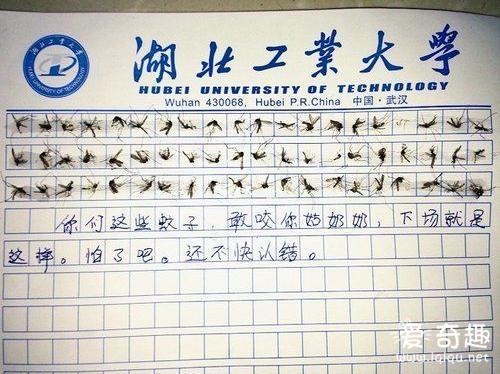 湖北工業大學
HUBEI UNIVERSITY OF TECHNOLOGY
Wuhan 430068, Hubei P.R.China 中国·武汉
你们这些蚊子,敢咬你姑奶奶,下场就是
这样。怕了吧。还不快认错。
爱奇趣
www.iqiqu.net